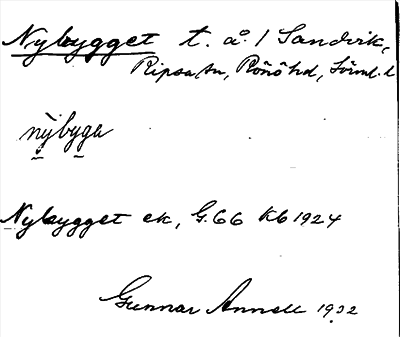 Nybygget t. å. 1 Sandvik,
Ripsa sn, Rönö hd, Sörml. l
nỳbyga
Nybygget ek, G.66 Kb 1924
Gunnar Annell 1932